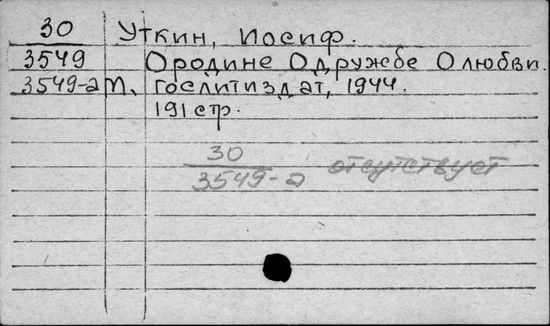 30 Уткин, Иосиф.
3549 О родине О дружбе О любви.
3549-а М. Гослитиздат, 1944.
191 стр.
30
3549-а отсутствует